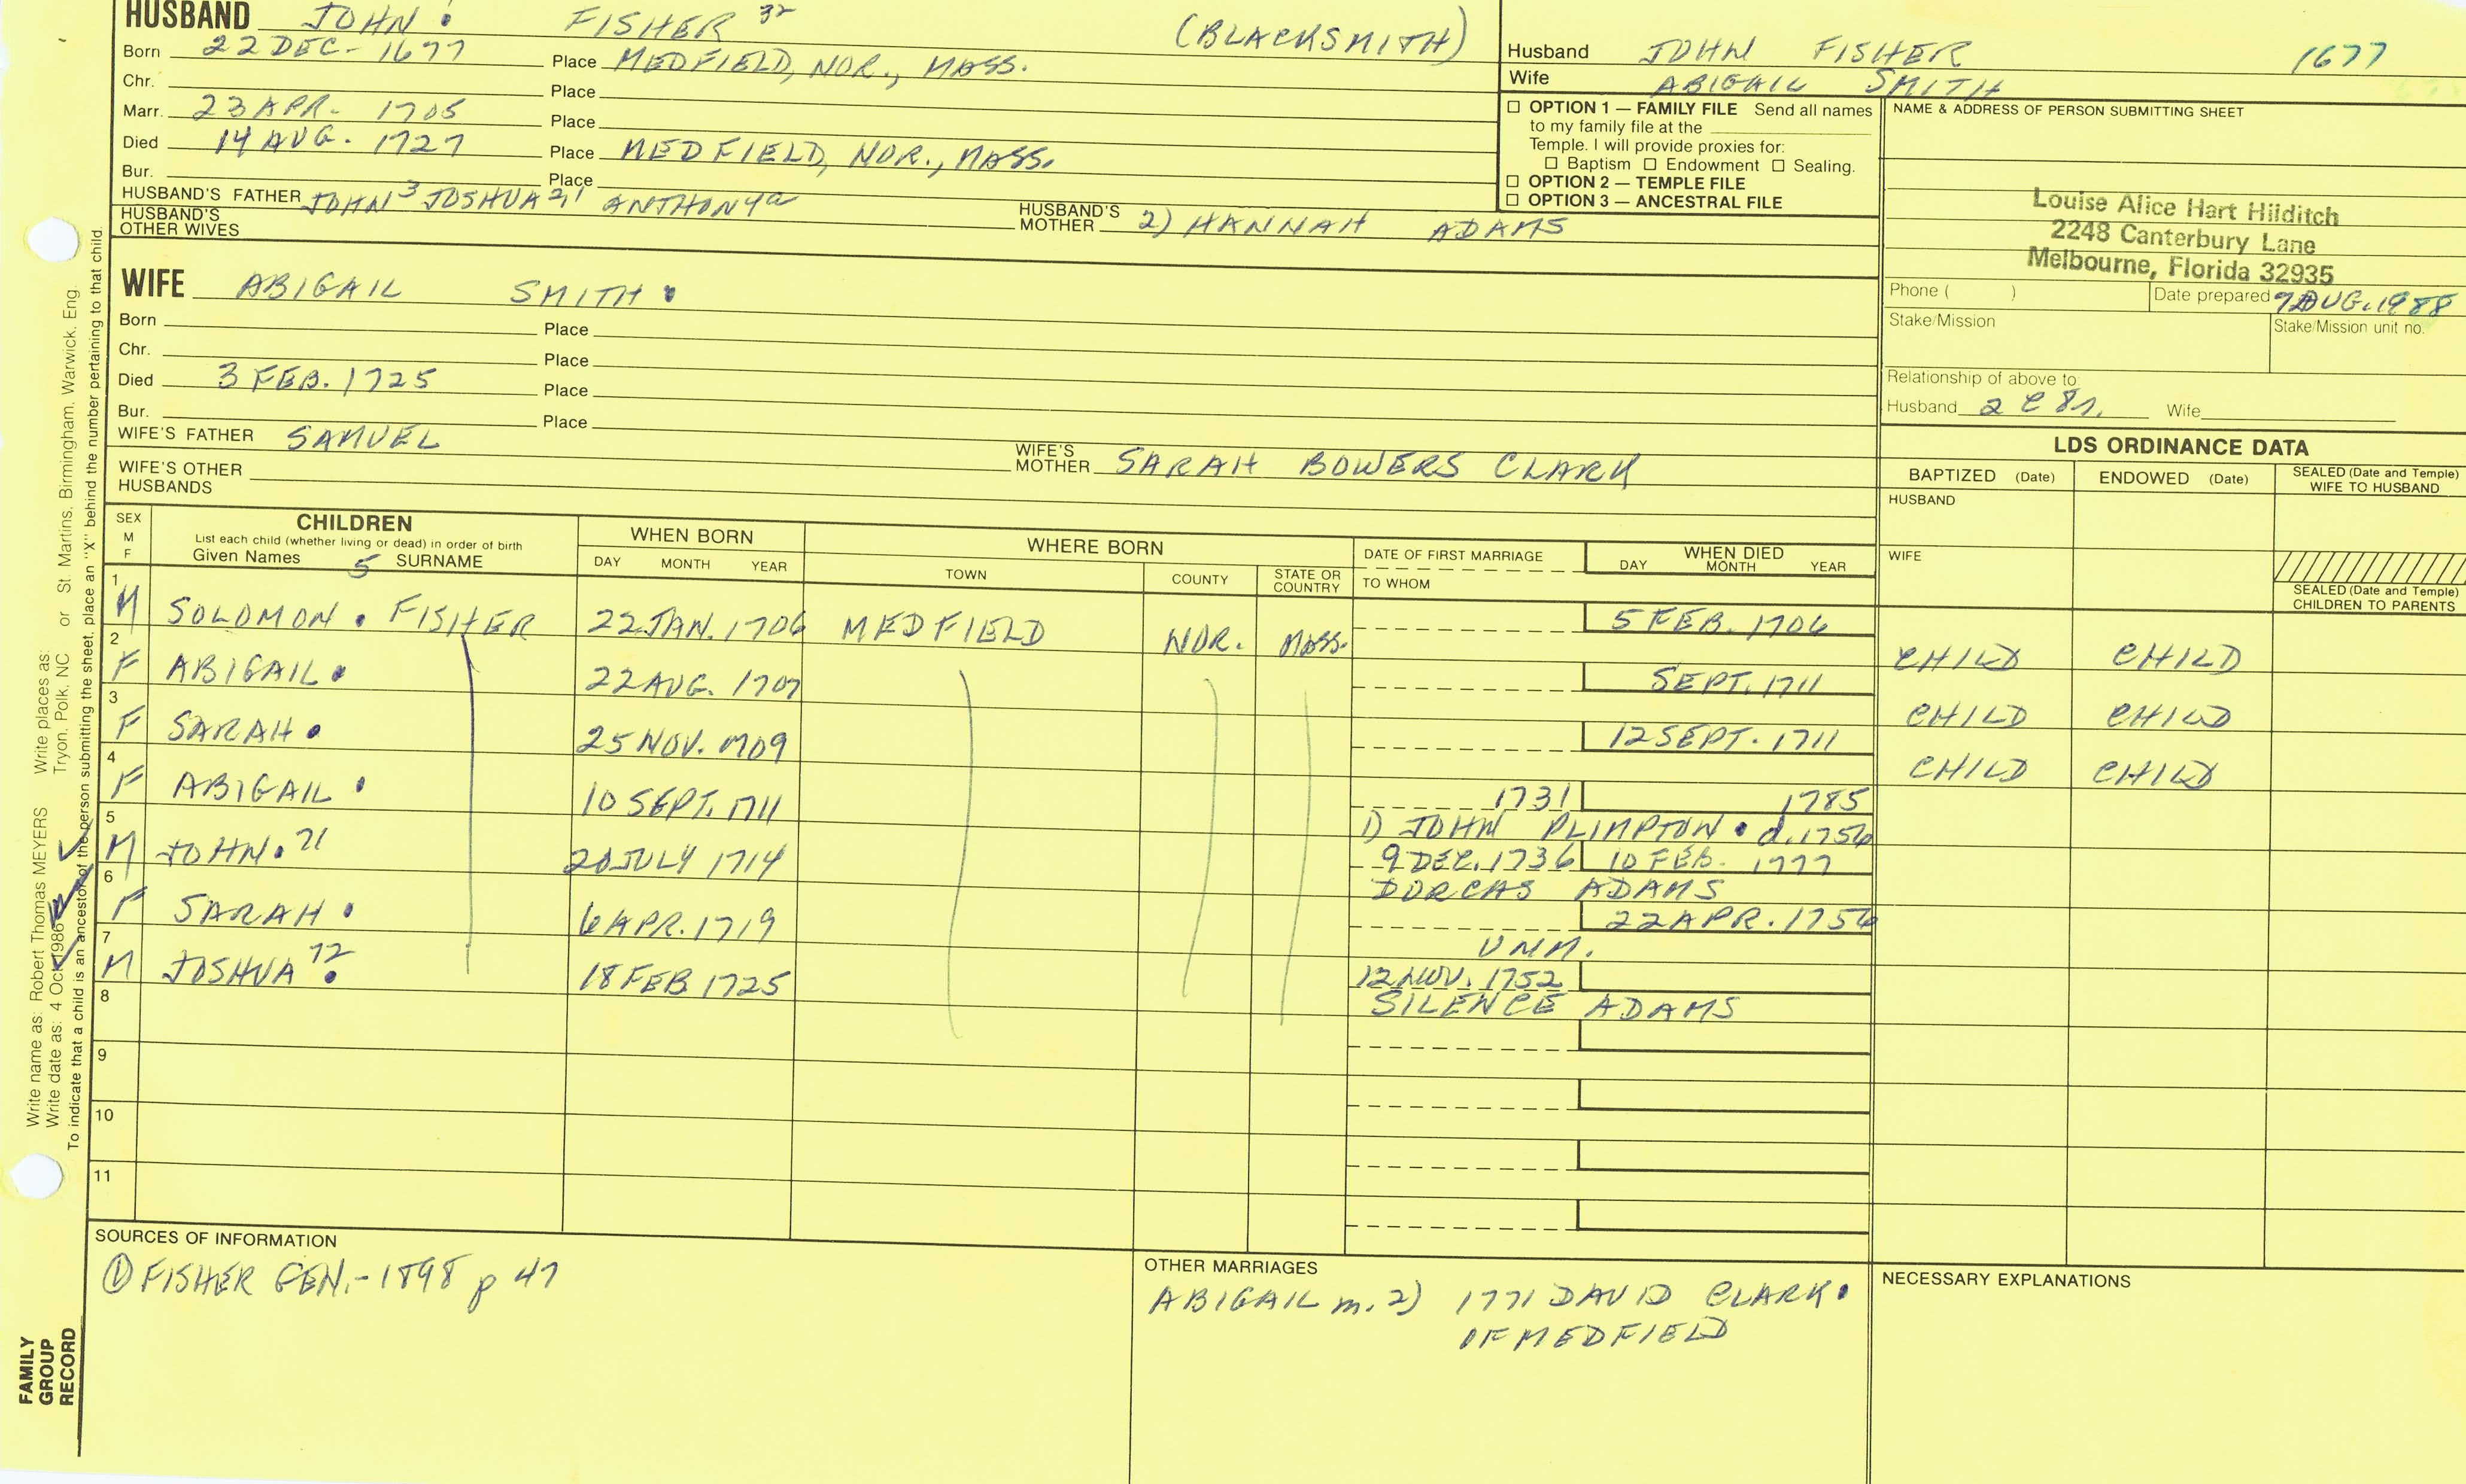 HUSBAND JOHN FISHER 32 (BLACKSMITH)
Born 22 DEC- 1677 Place MEDFIELD, NOR., MASS.
Chr. Place
Marr. 23 APR- 1705 Place
Died 14 AUG. 1727 Place MEDFIELD, NOR., MASS.
Bur. Place
HUSBAND'S FATHER JOHN 3 JOSHUA 2,1 ANTHONY a HUSBAND'S MOTHER 2) HANNAH ADAMS
HUSBAND'S OTHER WIVES
Husband JOHN FISHER 1677
Wife ABIGAIL SMITH
☐ OPTION 1 — FAMILY FILE Send all names
to my family file at the
Temple. I will provide proxies for:
☐ Baptism ☐ Endowment ☐ Sealing.
☐ OPTION 2 — TEMPLE FILE
☐ OPTION 3 — ANCESTRAL FILE
NAME & ADDRESS OF PERSON SUBMITTING SHEET
Louise Alice Hart Hilditch
2248 Canterbury Lane
Melbourne, Florida 32935
Phone ( ) Date prepared 7 AUG. 1988
Stake/Mission Stake/Mission unit no.
Relationship of above to
Husband 2 C 8r. Wife
WIFE ABIGAIL SMITH
Born Place
Chr. Place
Died 3 FEB. 1725 Place
Bur. Place
WIFE'S FATHER SAMUEL WIFE'S MOTHER SARAH BOWERS CLARK
WIFE'S OTHER HUSBANDS
LDS ORDINANCE DATA
BAPTIZED (Date) ENDOWED (Date) SEALED (Date and Temple) WIFE TO HUSBAND
HUSBAND
WIFE
SEALED (Date and Temple) CHILDREN TO PARENTS
SEX M F
CHILDREN
List each child (whether living or dead) in order of birth
Given Names 5 SURNAME
WHEN BORN
DAY MONTH YEAR
WHERE BORN
TOWN COUNTY STATE OR COUNTRY
DATE OF FIRST MARRIAGE
TO WHOM
WHEN DIED
DAY MONTH YEAR
1 M SOLOMON FISHER 22 JAN. 1706 MEDFIELD NOR. MASS. 5 FEB. 1706 CHILD CHILD
2 F ABIGAIL 22 AUG. 1707 SEPT. 1711 CHILD CHILD
3 F SARAH 25 NOV. 1709 12 SEPT. 1711 CHILD CHILD
4 F ABIGAIL 10 SEPT. 1711 1731 1785
1) JOHN PLIMPTON d. 1756
5 M JOHN 71 20 JULY 1714 9 DEC. 1736 10 FEB. 1777
DORCAS ADAMS
6 F SARAH 6 APR. 1719 22 APR. 1756
UNM.
7 M JOSHUA 72 18 FEB 1725 12 NOV. 1752
SILENCE ADAMS
8
9
10
11
SOURCES OF INFORMATION
① FISHER GEN. - 1898 p 47
OTHER MARRIAGES
ABIGAIL m. 2) 1771 DAVID CLARK
OF MEDFIELD
NECESSARY EXPLANATIONS
Write name as: Robert Thomas MEYERS Write places as: Tryon, Polk, NC or St. Martins, Birmingham, Warwick, Eng.
Write date as: 4 Oct 1986
To indicate that a child is an ancestor of the person submitting the sheet, place an "X" behind the number pertaining to that child.
FAMILY
GROUP
RECORD